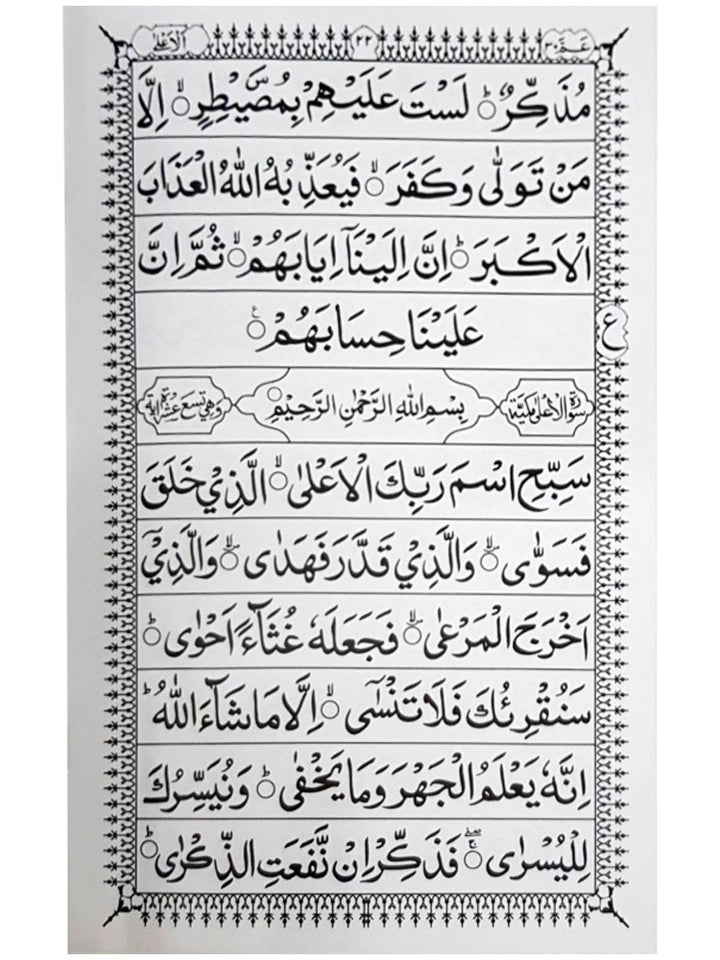 عَمَّ ٣٠ ٢٢ الاعلى
مُذَكِّرٌ ؕ لَسْتَ عَلَيْهِمْ بِمُصَۜيْطِرٍ ۙ اِلَّا
مَنْ تَوَلّٰى وَكَفَرَ ۙ فَيُعَذِّبُهُ اللّٰهُ الْعَذَابَ
الْاَكْبَرَ ؕ اِنَّ اِلَيْنَاۤ اِيَابَهُمْ ۙ ثُمَّ اِنَّ
عَلَيْنَا حِسَابَهُمْ ۠
ع
سورة الاعلى مكية بِسْمِ اللّٰهِ الرَّحْمٰنِ الرَّحِيْمِ وهي تسع عشرة اية
سَبِّحِ اسْمَ رَبِّكَ الْاَعْلٰى ۙ الَّذِيْ خَلَقَ
فَسَوّٰى ۙ وَالَّذِيْ قَدَّرَ فَهَدٰى ۙ وَالَّذِيْۤ
اَخْرَجَ الْمَرْعٰى ۙ فَجَعَلَهٗ غُثَآءً اَحْوٰى ؕ
سَنُقْرِئُكَ فَلَا تَنْسٰۤى ۙ اِلَّا مَا شَآءَ اللّٰهُ ؕ
اِنَّهٗ يَعْلَمُ الْجَهْرَ وَمَا يَخْفٰى ؕ وَنُيَسِّرُكَ
لِلْيُسْرٰى ۚۖ فَذَكِّرْ اِنْ نَّفَعَتِ الذِّكْرٰى ؕ